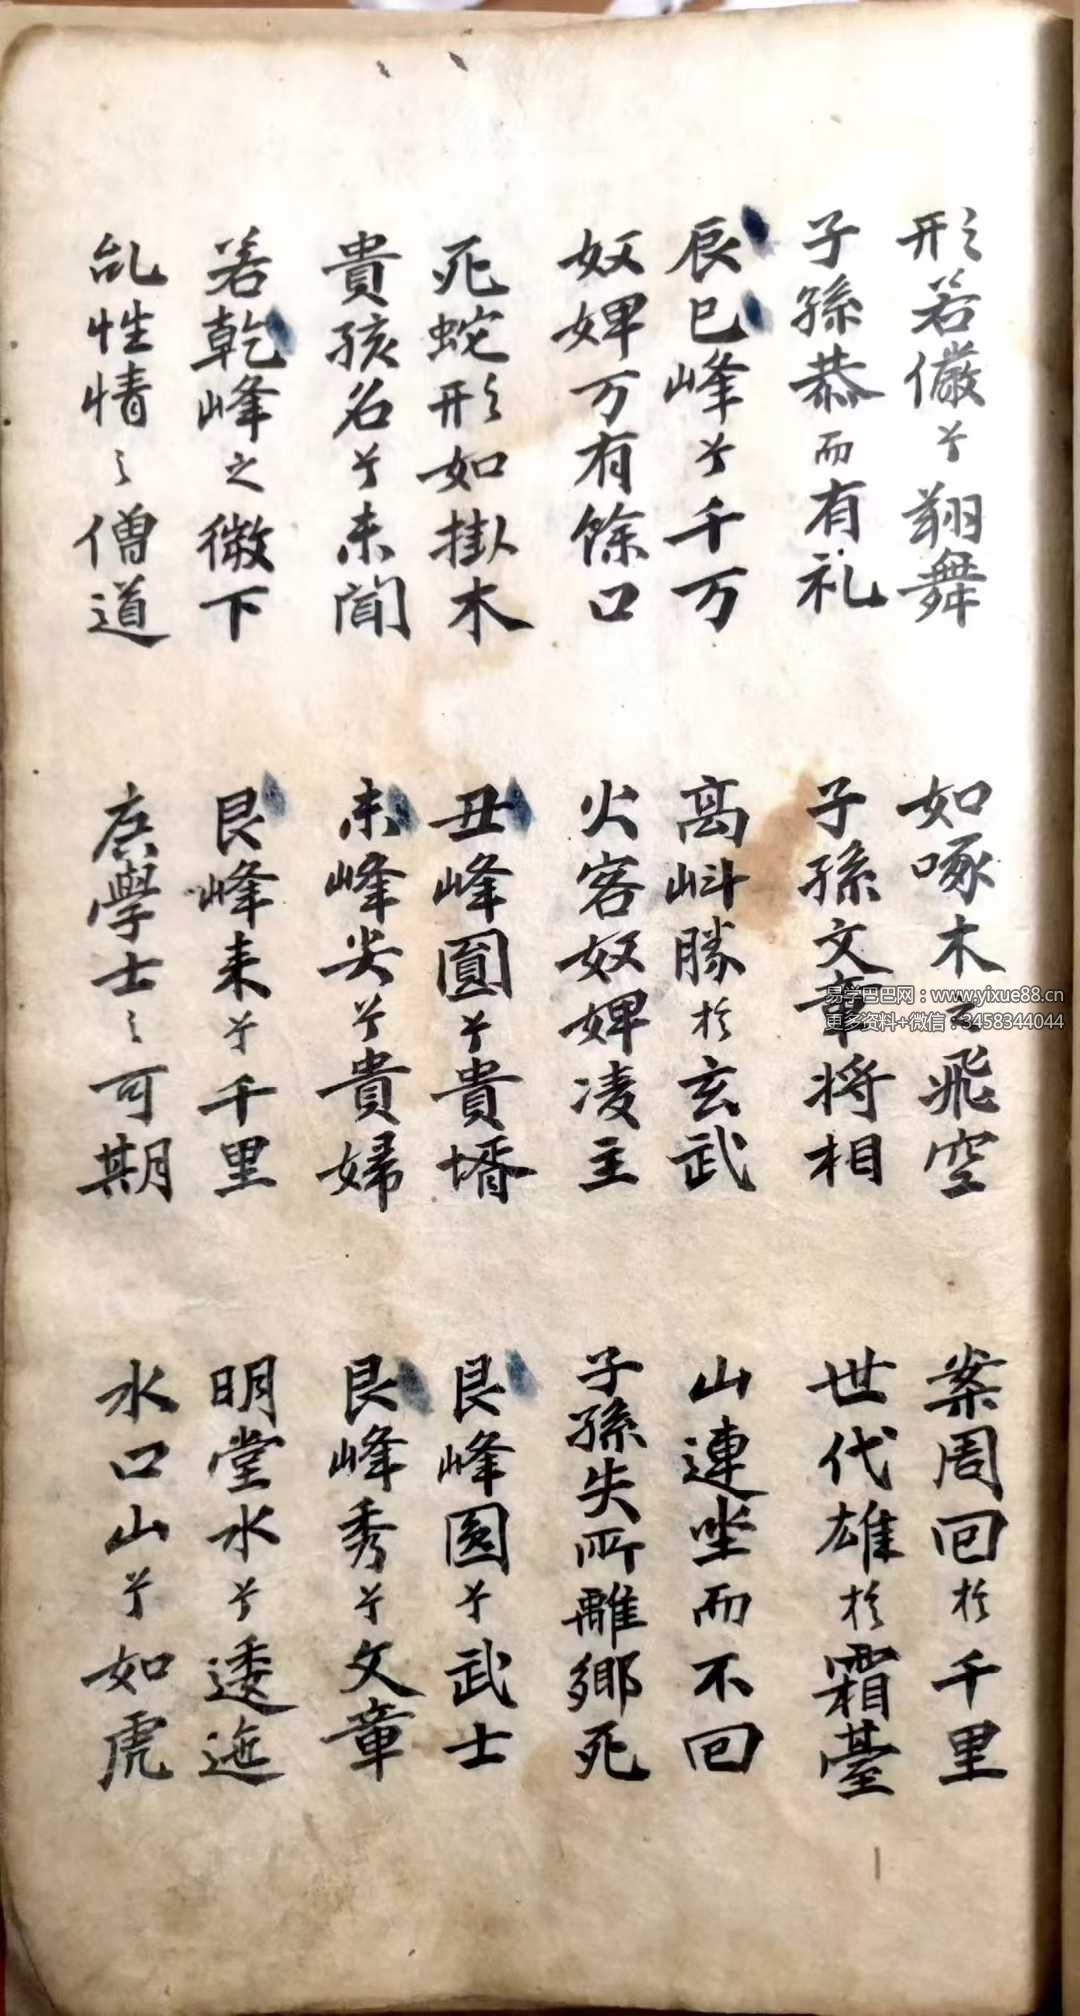 形若儼兮翔舞 如啄木之飛空 案周回於千里
子孫恭而有礼 子孫文章将相 世代雄於霜臺
辰巳峰兮千万 高勝於玄武 山連坐而不回
奴婢万有餘口 火客奴婢凌主 子孫失所離鄉死
死蛇形如掛木 丑峰圓兮貴壻 艮峰圆兮武士
貴孩名兮未聞 未峰尖兮貴婦 艮峰秀兮文章
若乾峰之微下 艮峰来兮千里 明堂水兮逶迤
乱性情之僧道 庶學士之可期 水口山兮如虎
易学巴巴网：www.yixue88.cn
更多资料+微信：3458344044